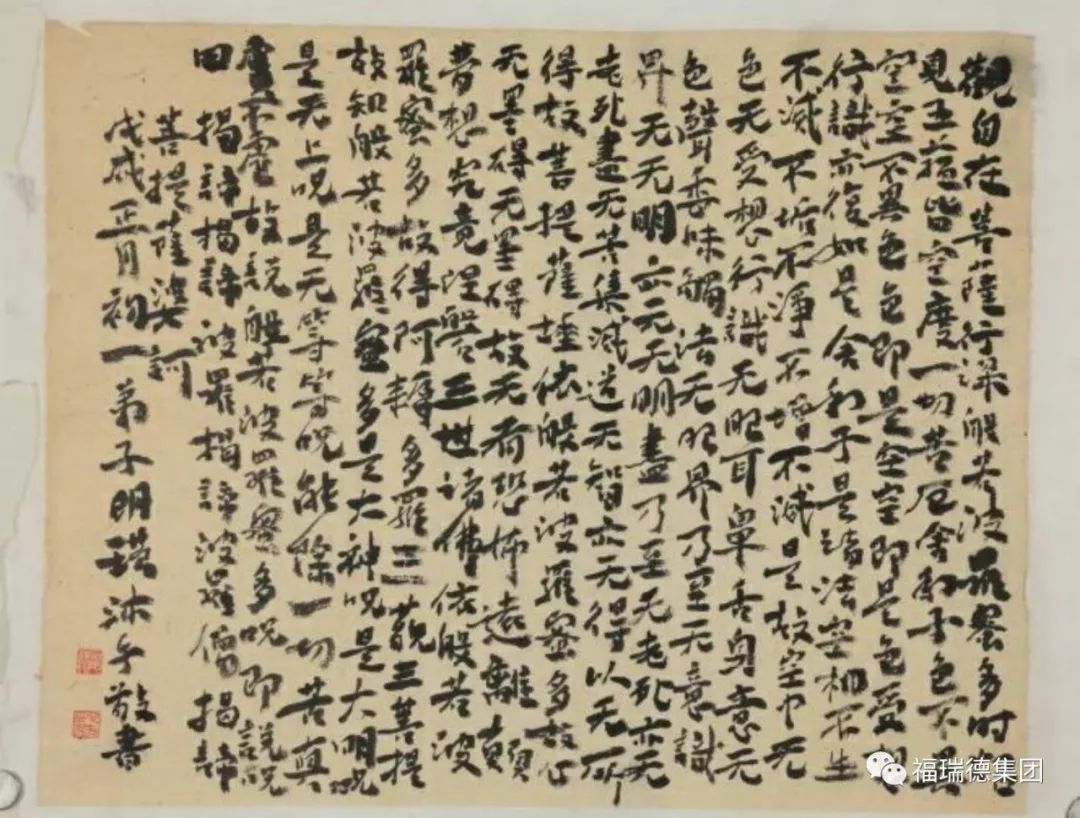 觀自在菩薩行深般若波羅蜜多時照
見五蘊皆空度一切苦厄舍利子色不異
空空不異色色即是空空即是色受想
行識亦復如是舍利子是諸法空相不生
不滅不垢不淨不增不減是故空中无
色无受想行識无眼耳鼻舌身意无
色聲香味觸法无眼界乃至无意識
界无无明亦无无明盡乃至无老死亦无
老死盡无苦集滅道无智亦无得以无所
得故菩提薩埵依般若波羅蜜多故心
无罣碍无罣碍故无有恐怖遠離顛
夢想究竟涅槃三世諸佛依般若波
羅蜜多故得阿耨多羅三藐三菩提
故知般若波羅蜜多是大神咒是大明咒
是无上咒是无等等咒能除一切苦真
實不虛故說般若波羅蜜多咒即說咒
曰揭諦揭諦波羅揭諦波羅僧揭諦
菩提薩婆訶
戊戌正月初一弟子明沐手敬書
福瑞德集团